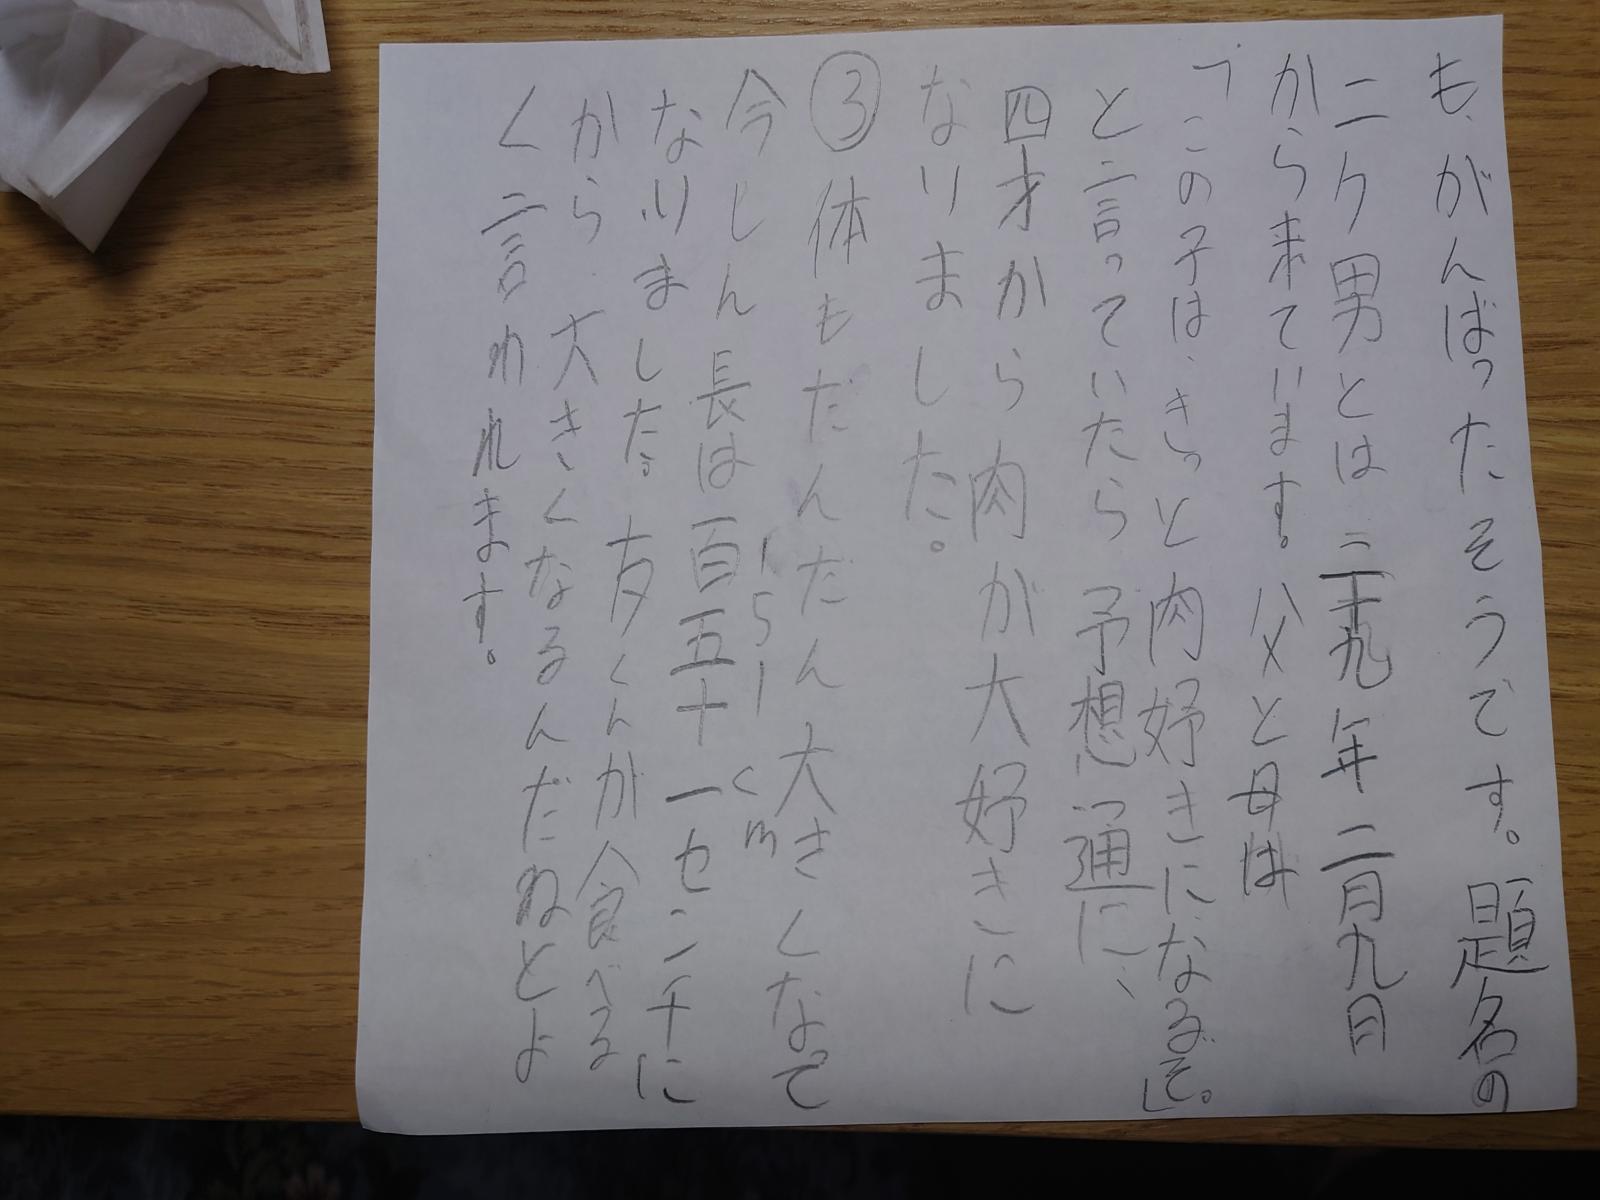 も、がんばったそうです。題名の
ニク男とは二十九年二月九日
から来ています。父と母は
「この子は、きっと肉好きになるぞ。」
と言っていたら予想通に、
四才から肉が大好きに
なりました。
③体もだんだん大きくなって
今しん長は百五十一センチに
151cm
なりました。友くんが食べる
から大きくなるんだねとよ
く言われます。